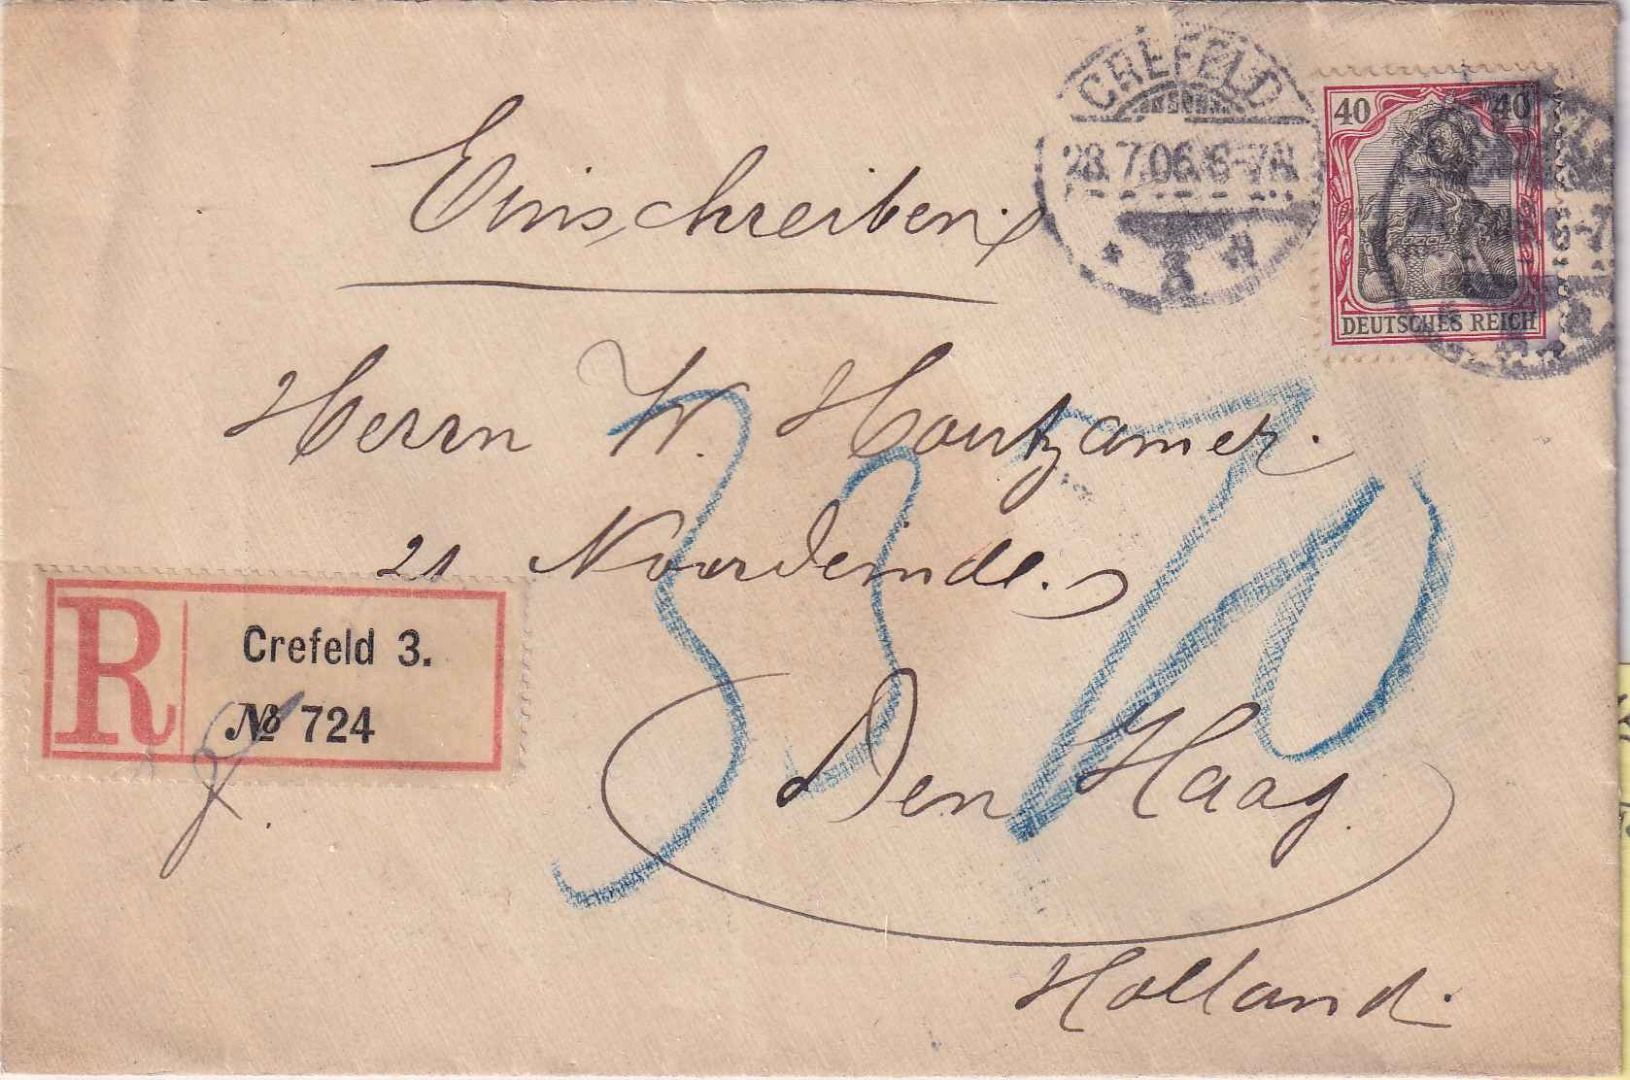 CREFELD
28.7.06.6-7N.
* 3 *
40 40
DEUTSCHES REICH
6-7
Einschreiben.
Herrn W. Houtzamer.
21 Noordeinde.
R
Crefeld 3.
№ 724
Den Haag.
Holland.